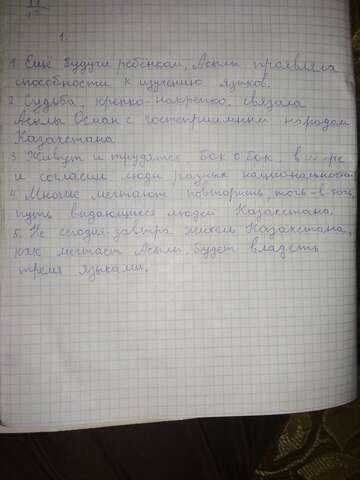 1.
1 Ещё будучи ребенком, Асылы проявляла
способности к изучению языков.
2 Судьба, крепко-накрепко, связала
Асылы Осман с гостеприимным народом
Казахстана
3 Живут и трудятся, бок о бок, в
и согласии люди разных национальностей
4 Многие мечтают повторить, точь-в-точь,
путь выдающиеся людей Казахстана.
5. Не сегодня-завтра житель Казахстана,
как мечтает Асылы, будет владеть
тремя языками.